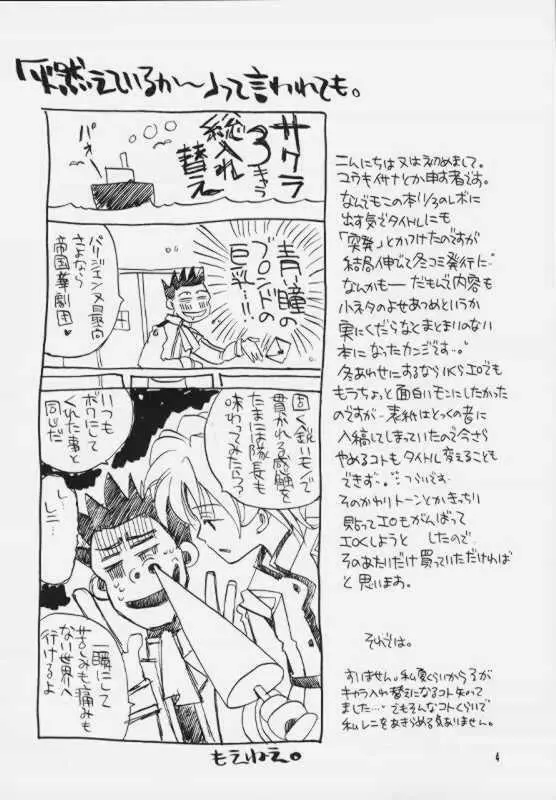 「燃えているか〜」って言われても。
サクラ
3キャラ
総入れ
替え
パオー
青い瞳の
ブロンドの
巨乳…!!
パリジェンヌ最高
さよなら
帝国華劇団
固く鋭いモンで
貫かれる感触を
たまには隊長も
味わってみたら?
いつも
ボクにして
くれた事と
同じだ
レニ…
し…
一瞬にして
苦しみも痛みも
ない世界へ
行けるよ
もえねえ。
こんにちは又は初めまして。
コウキイサナとか申す者です。
なんでもこの本1/3のレボに
出す気でタイトルにも
「突発」とかつけたのですが
結局伸びて冬コミ発行に。
なんかもー だもんで内容も
小ネタのよせあつめというか
実にくだらなくまとまりのない
本になったカンジです…。
冬あわせにするなら エロでも
もうちょっと面白いモンにしたかった
のですが 表紙はとっくの昔に
入稿してしまっていたので今さら
やめるコトもタイトル変えることも
できず… つらいです。
そのかわりトーンとかきっちり
貼ってエロもがんばって
したので
そのあたいだけ買っていただければ
と思います。
それでは。
すいません。私夏くらいから3が
キャラ入れ替えになるコト知って
ました…。でもそんなコトくらいで
私レニをあきらめる気ありません。
4